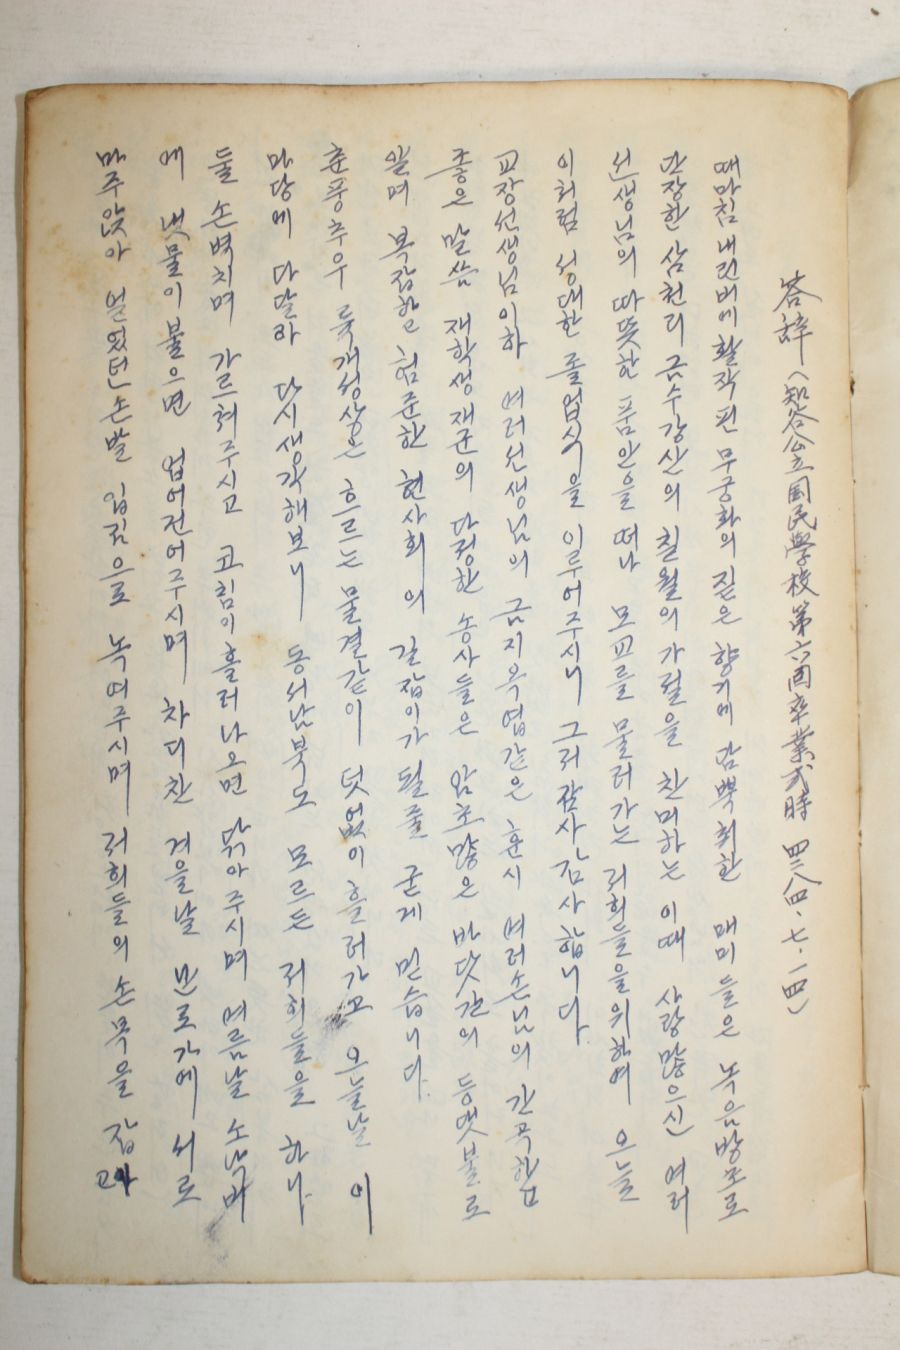 答辭 (知谷公立国民学校 第六回 卒業式時 四二八四.七.一四)
때마침 내린비에 활작핀 무궁화의 짙은 향기에 담뿍취한 매미들은 녹음방초로
단장한 삼천리 금수강산의 칠월의 가절을 찬미하는 이때 사랑많으신 여러
선생님의 따뜻한 품안을 떠나 모교를 물러가는 저희들을위하여 오늘
이처럼 성대한 졸업식을 이루어주시니 그저감사감사합니다.
교장선생님이하 여러선생님의 금지옥엽같은 훈시 여러손님의 간곡합
좋은 말씀 재학생제군의 다정한 송사들은 암초많은 바닷간의 등댓불로
알며 복잡하고 험준한 현사회의 길잡이가 될줄 굳게 믿습니다.
춘풍추우 륙개성상은 흐르는 물결같이 덧없이흘러가고 오늘날 이
마당에 다달아 다시생각해보니 동서남북도 모르든 저희들을 하나
둘 손벽치며 가르쳐주시고 코침이흘러나오면 닦아주시며 여름날 소낙비
에 냇물이불으면 업어건너주시며 차디찬 겨울날 난로가에 서로
마주앉아 얼었던손발 입김으로 녹여주시며 저희들의 손목을 잡고